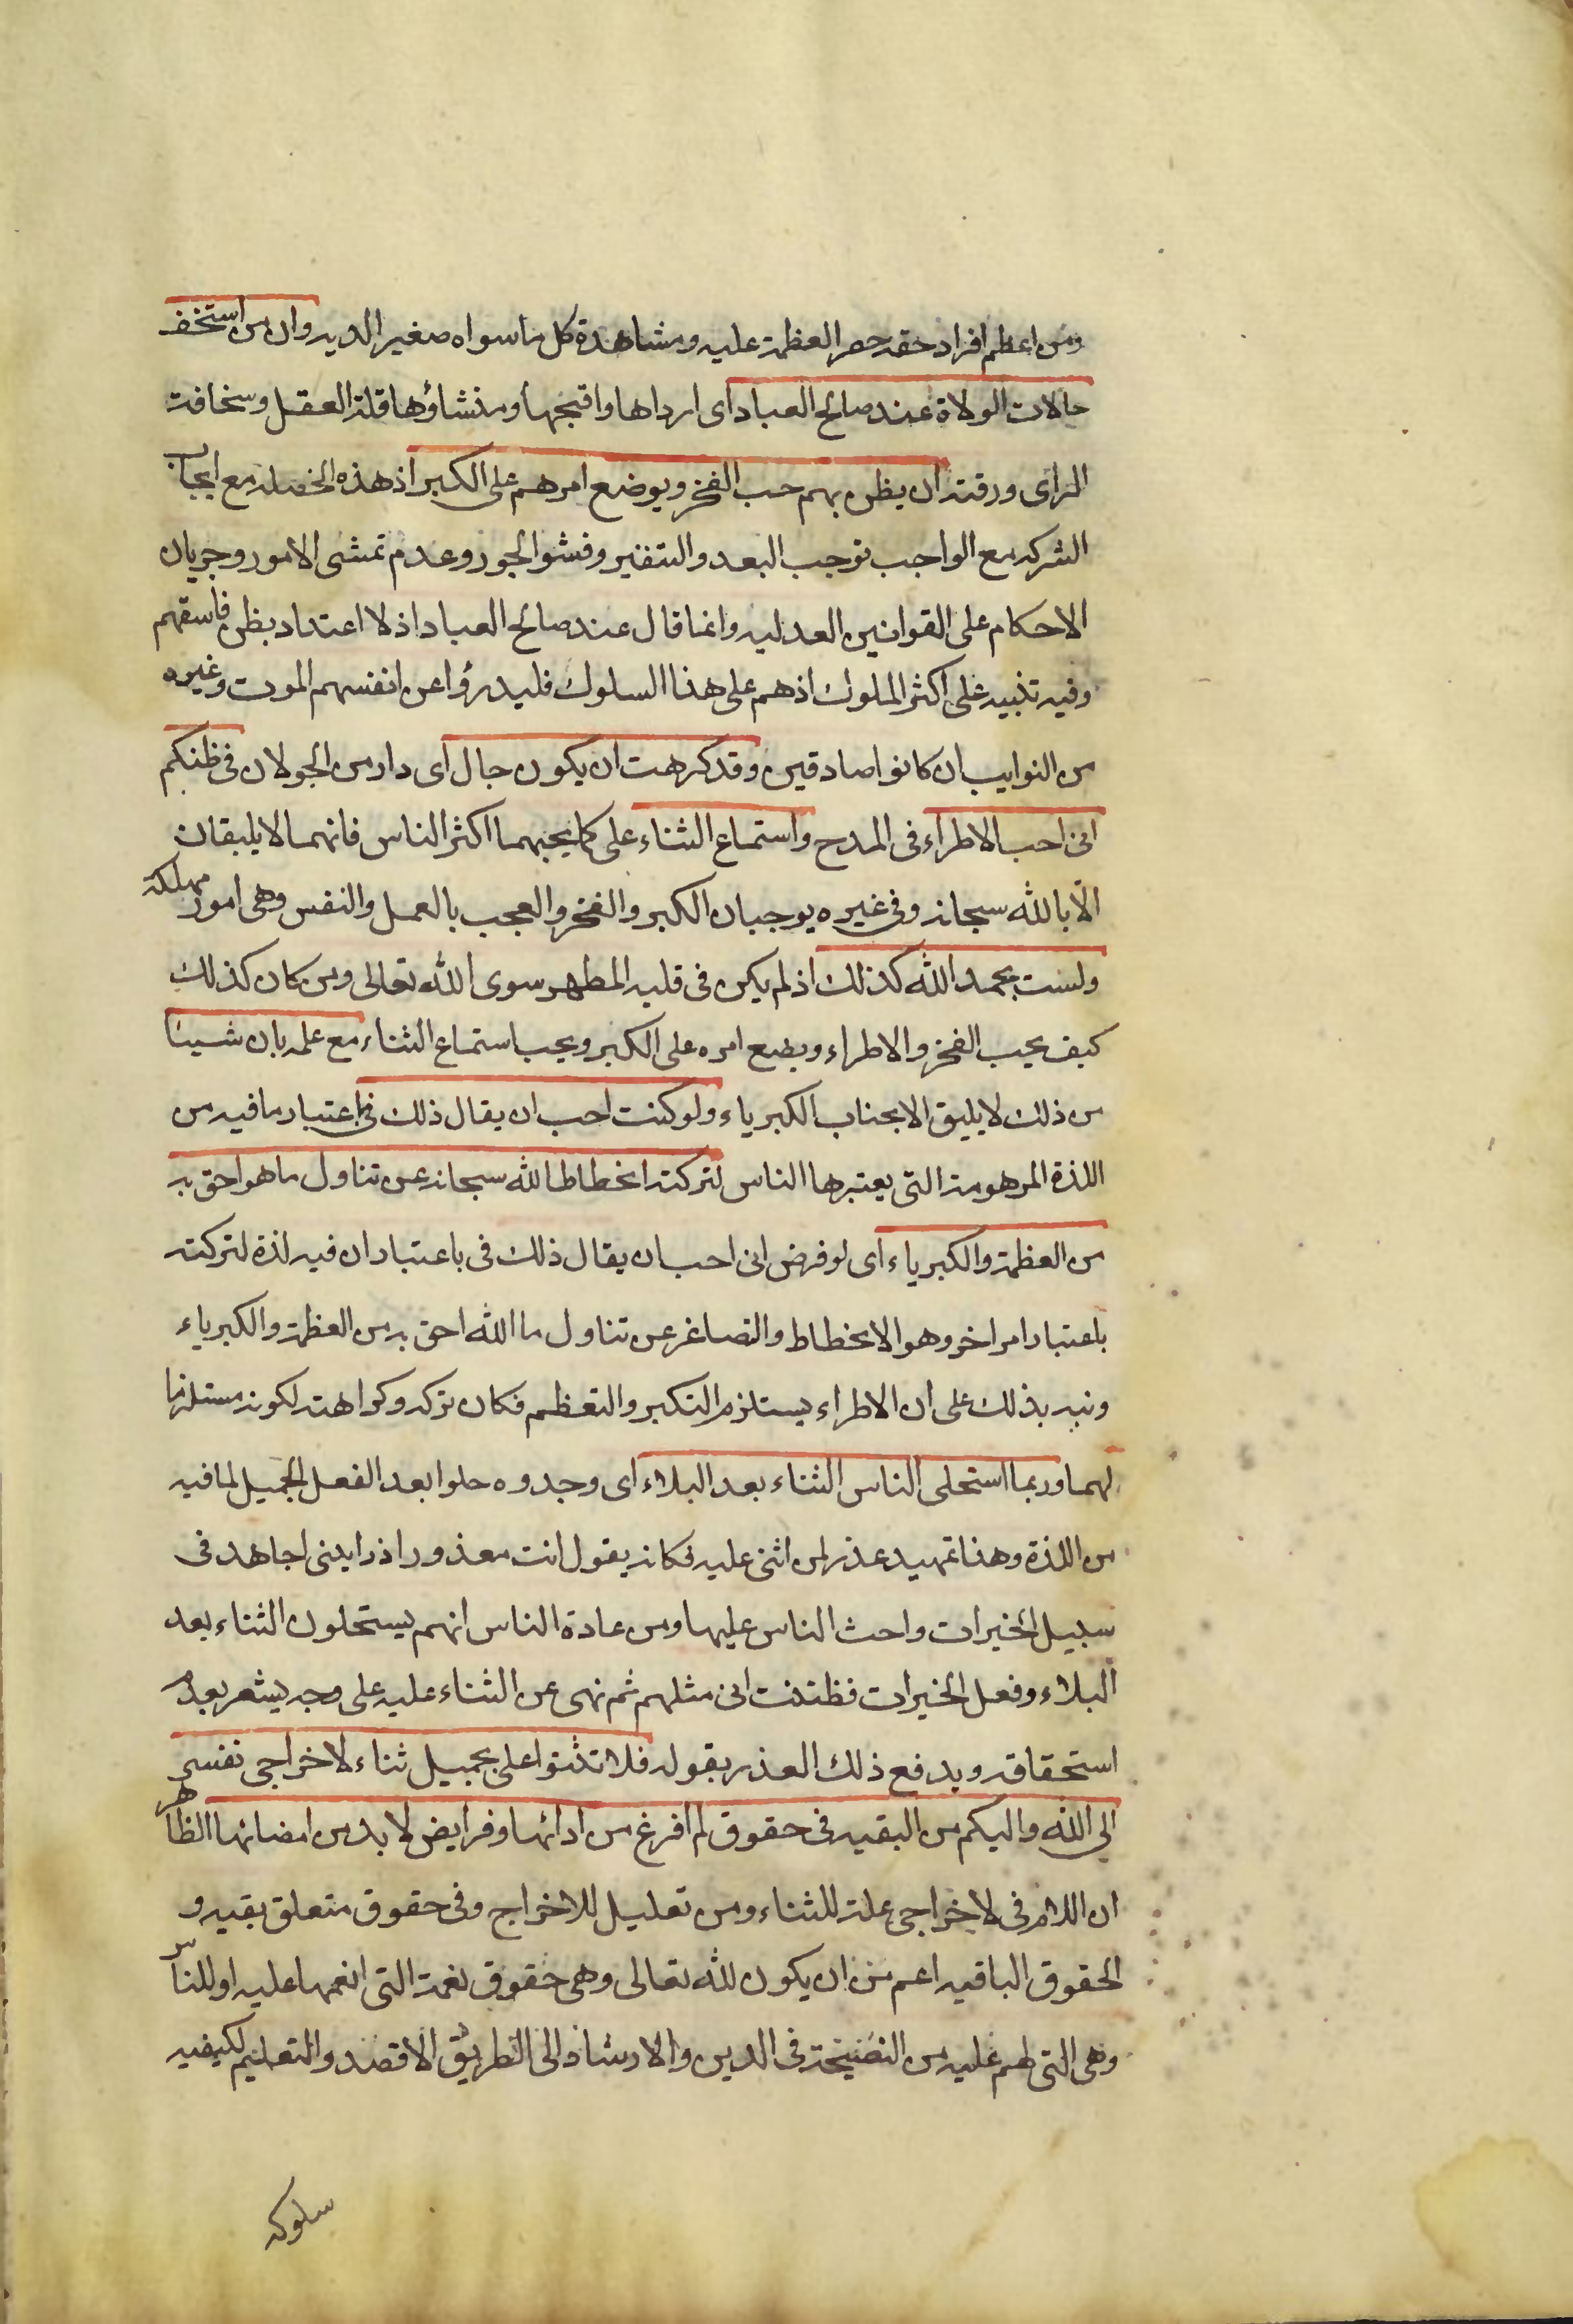 ومن اعظم افراد حقه حصر العظمة عليه ومشاهدة كل ما سواه صغيرا لديه وان من استخف
حالات الولاة عند صالح العباد اى ارداها واقبحها ومنشاؤها قلة العقل وسخافة
الراى ورقته ان يظن بهم حب الفخر ويوضع امرهم على الكبر اذ هذه الخصلة مع ايجاب
الشركه مع الواجب توجب البعد والتنفير وفشو الجور وعدم تمشى الامور وجريان
الاحكام على القوانين العدليه وانما قال عند صالح العباد اذ لا اعتداد بظن فاسقهم
وفيه تنبيه على اكثر الملوك اذ هم على هذا السلوك فليدرؤا عن انفسهم الموت وغيره
من النوايب ان كانوا صادقين وقد كرهت ان يكون جال اى دار من الجولان فى ظنكم
انى احب الاطراء فى المدح واستماع الثناء على كما يحبهما اكثر الناس فانهما لا يليقان
الا بالله سبحانه وفى غيره يوجبان الكبر والفخر والعجب بالعمل والنفس وهى امور مهلكة
ولست بحمد الله كذلك اذ لم يكن فى قلبه المطهر سوى الله تعالى ومن كان كذلك
كيف يحب الفخر والاطراء ويضع امره على الكبر ويحب استماع الثناء مع علمه بان شيئا
من ذلك لا يليق الا بجناب الكبرياء ولو كنت احب ان يقال ذلك فى باعتبار ما فيه من
اللذة المرهومة التى يعتبرها الناس لتركته انحطاطا لله سبحانه عن تناول ما هو احق به
من العظمة والكبرياء اى لو فرض انى احب ان يقال ذلك فى باعتبار ان فيه لذة لتركته
باعتبار امر اخر وهو الانحطاط والتصاغر عن تناول ما الله احق به من العظمة والكبرياء
ونبه بذلك على ان الاطراء يستلزم التكبر والتعظم فكان تركه وكراهته لكونه مستلزما
لهما وربما استحلى الناس الثناء بعد البلاء اى وجدوه حلوا بعد الفعل الجميل لما فيه
من اللذة وهذا تمهيد عذر لمن اثنى عليه فكانه يقول انت معذور اذ رايتنى اجاهد فى
سبيل الخيرات واحث الناس عليها ومن عادة الناس انهم يستحلون الثناء بعد
البلاء وفعل الخيرات فظننت انى مثلهم ثم نهى عن الثناء عليه على وجه يشعر بعدم
استحقاقه ويدفع ذلك العذر بقوله فلا تثنوا على بجميل ثناء لاخراجى نفسى
الى الله واليكم من البقيه فى حقوق لم افرغ من ادائها وفرايض لا بد من امضائها الظاهر
ان اللام فى لاخراجى علة للثناء ومن تعليل للاخراج وفى حقوق متعلق بقيه و
الحقوق الباقيه اعم من ان يكون لله تعالى وهى حقوق نعمة التى انعمها عليه او للناس
وهى التى لهم عليه من النصيحة فى الدين والارشاد الى الطريق الاقصد والتعليم لكيفيه
سلوكه